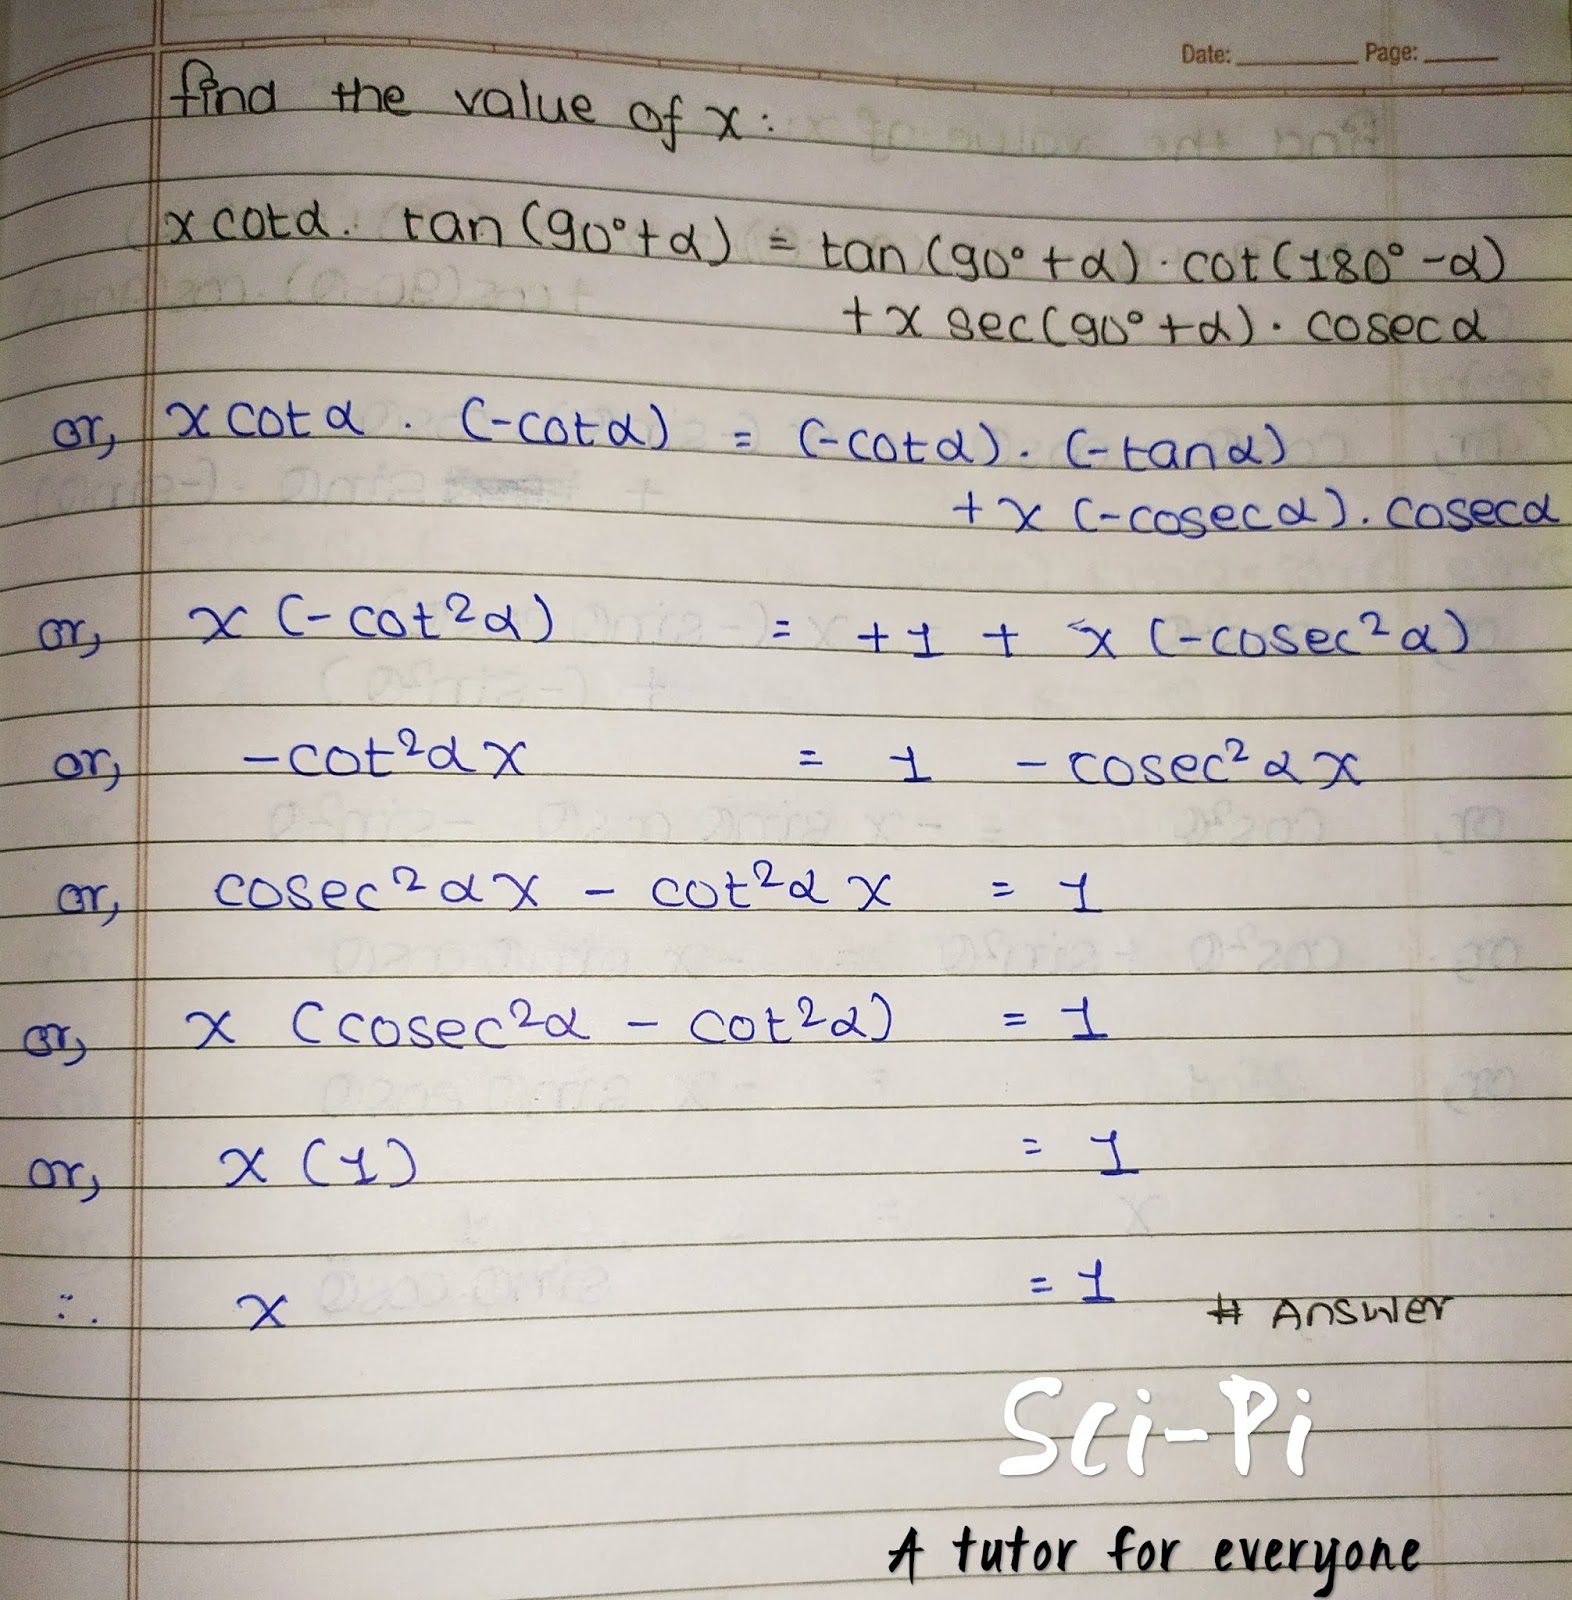 Date: Page:
find the value of x:
x cotα. tan(90°+α) = tan(90°+α).cot(180°-α)
+x sec(90°+α). cosecα
or, x cotα . (-cotα) = (-cotα). (-tanα)
+x (-cosecα). cosecα
or, x (-cot²α) = +1 + x (-cosec²α)
or, -cot²αx = 1 - cosec²αx
or, cosec²αx - cot²αx = 1
or, x (cosec²α - cot²α) = 1
or, x (1) = 1
∴ x = 1 # Answer
Sci-Pi
A tutor for everyone